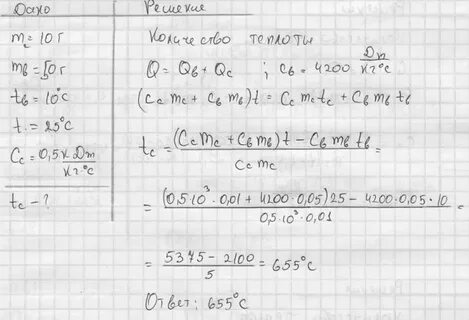 Дано
m = 10 г
mв = 50 г
tв = 10°C
t = 25°C
Cc = 0,5 к Дж/кг·°C
tc - ?
Решение
Количество теплоты
Q = Qв + Qc ; cв = 4200 Дж/кг·°C
(Cc mc + Cв mв)t = Cc mc tc + Cв mв tв
tc = ((Cc mc + Cв mв)t - Cв mв tв)/(Cc mc) =
= ((0,5·10³·0,01 + 4200·0,05)25 - 4200·0,05·10)/(0,5·10³·0,01) =
= (5375 - 2100)/5 = 655°C
Ответ: 655°C